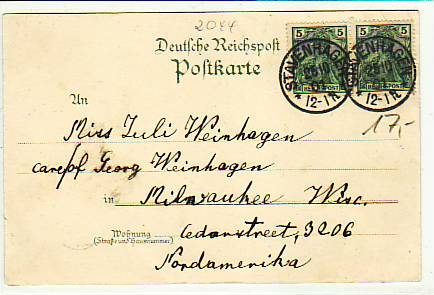 2044
5 5 5 5
REICHSPOST
STAVENHAGEN
12-1N.
Deutsche Reichspost
Postkarte
17,-
An
Miss Juli Weinhagen
care of Georg Weinhagen
in Milwaukee Wisc.
Cedarstreet, 3206
Wohnung
(Straße und Hausnummer)
Nordamerika